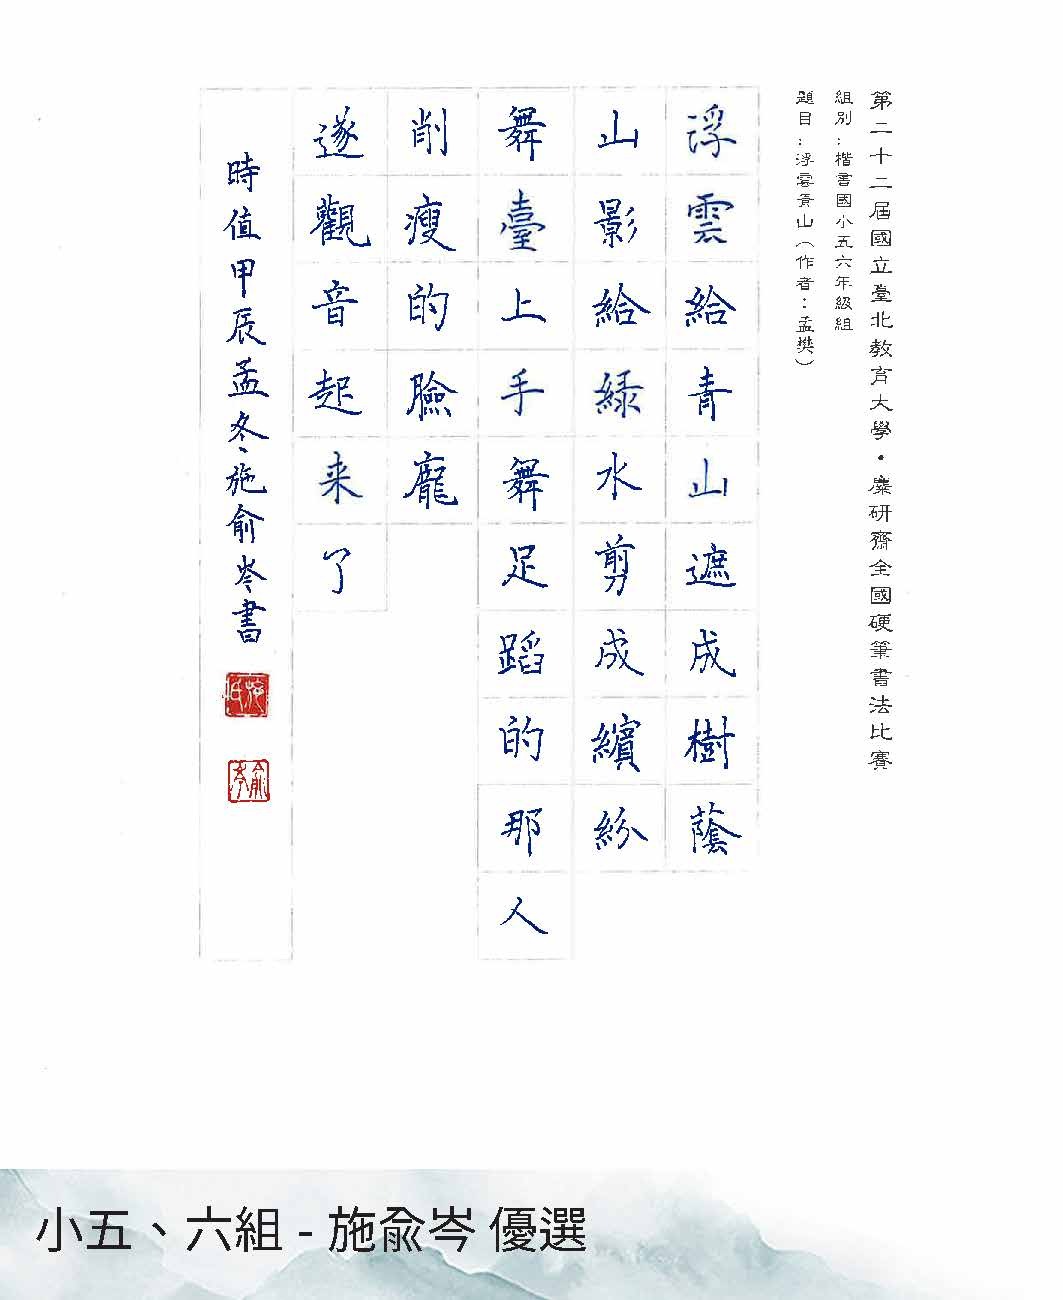 第二十二屆國立臺北教育大學・麋研齋全國硬筆書法比賽
組別：楷書國小五六年級組
題目：浮雲青山（作者：孟樊）
浮雲給青山遮成樹蔭
山影給綠水剪成繽紛
舞臺上手舞足蹈的那人
削瘦的臉龐
遂觀音起来了
時值甲辰孟冬施俞岑書
施氏
俞岑
小五、六組 - 施俞岑 優選